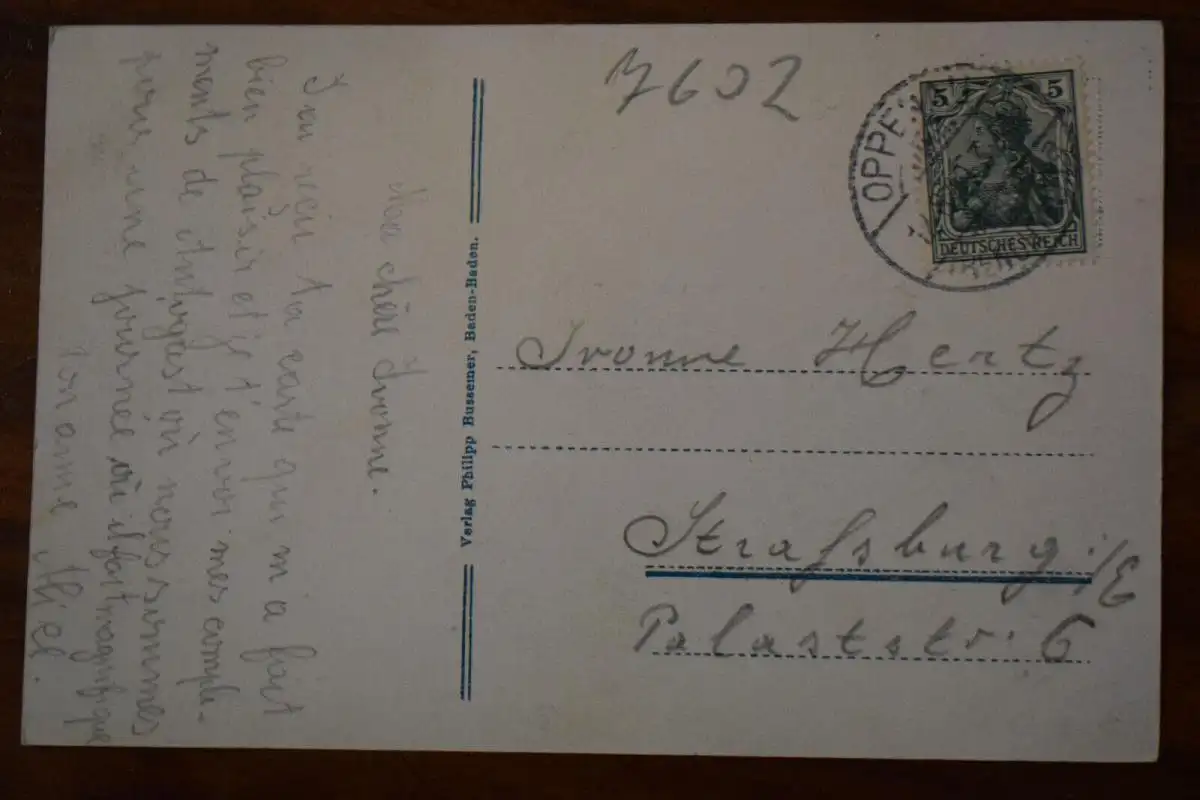 Ma chère Ivonne.
J'ai reçu ta carte qui m'a fait
bien plaisir et je t'envoi mes comple-
ments de Antogast où nous sommes
pour une journée où il fait magnifique
Ton amie
Verlag Philipp Bussemer, Baden-Baden.
7602
5 5
DEUTSCHES REICH
OPPE
Ivonne Hertz
Straßburg i/E
Palaststr. 6